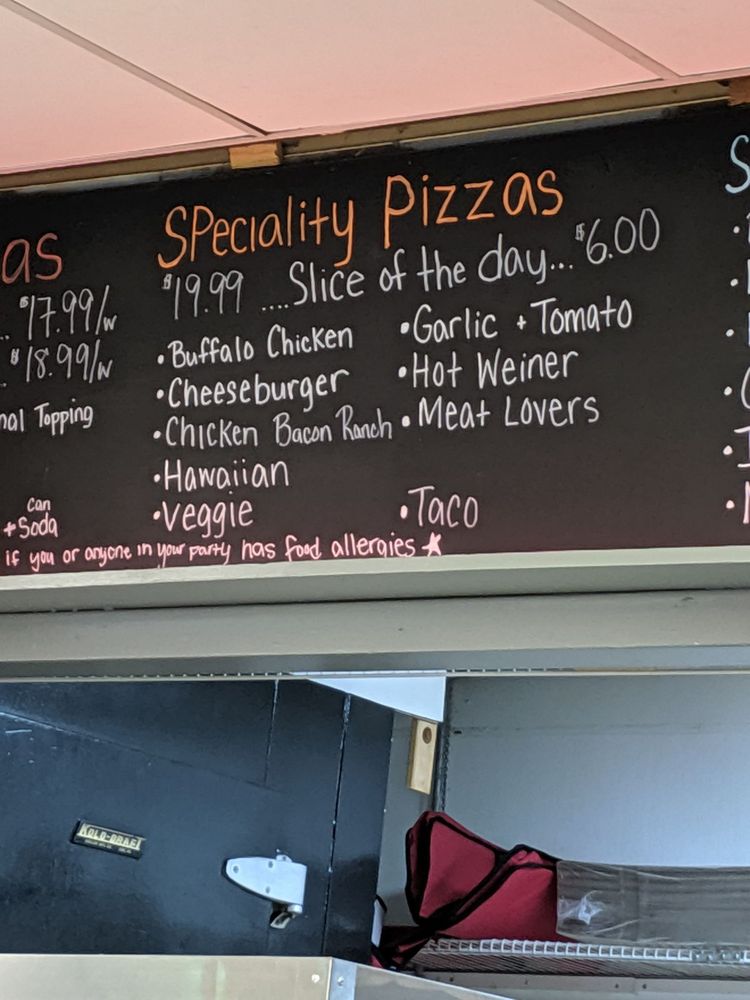 as
$17.99/w
$18.99/w
nal Topping
can
+Soda
SPeciality Pizzas
$19.99 ....Slice of the day...$6.00
•Buffalo Chicken
•Cheeseburger
•Chicken Bacon Ranch
•Hawaiian
•Veggie
•Garlic + Tomato
•Hot Weiner
•Meat Lovers
•Taco
if you or anyone in your party has food allergies ★
S
KOLD-DRAFT